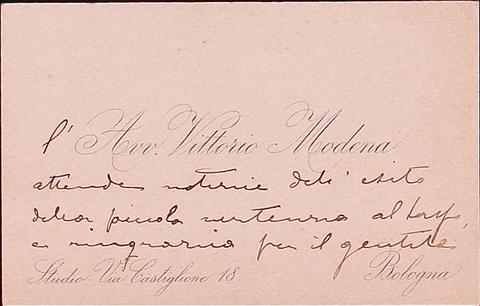 l' Avv. Vittorio Modena
attende notizie dell' esito
della piccola vertenza al
e ringrazia per il gentile
Studio Via Castiglione 18.
Bologna